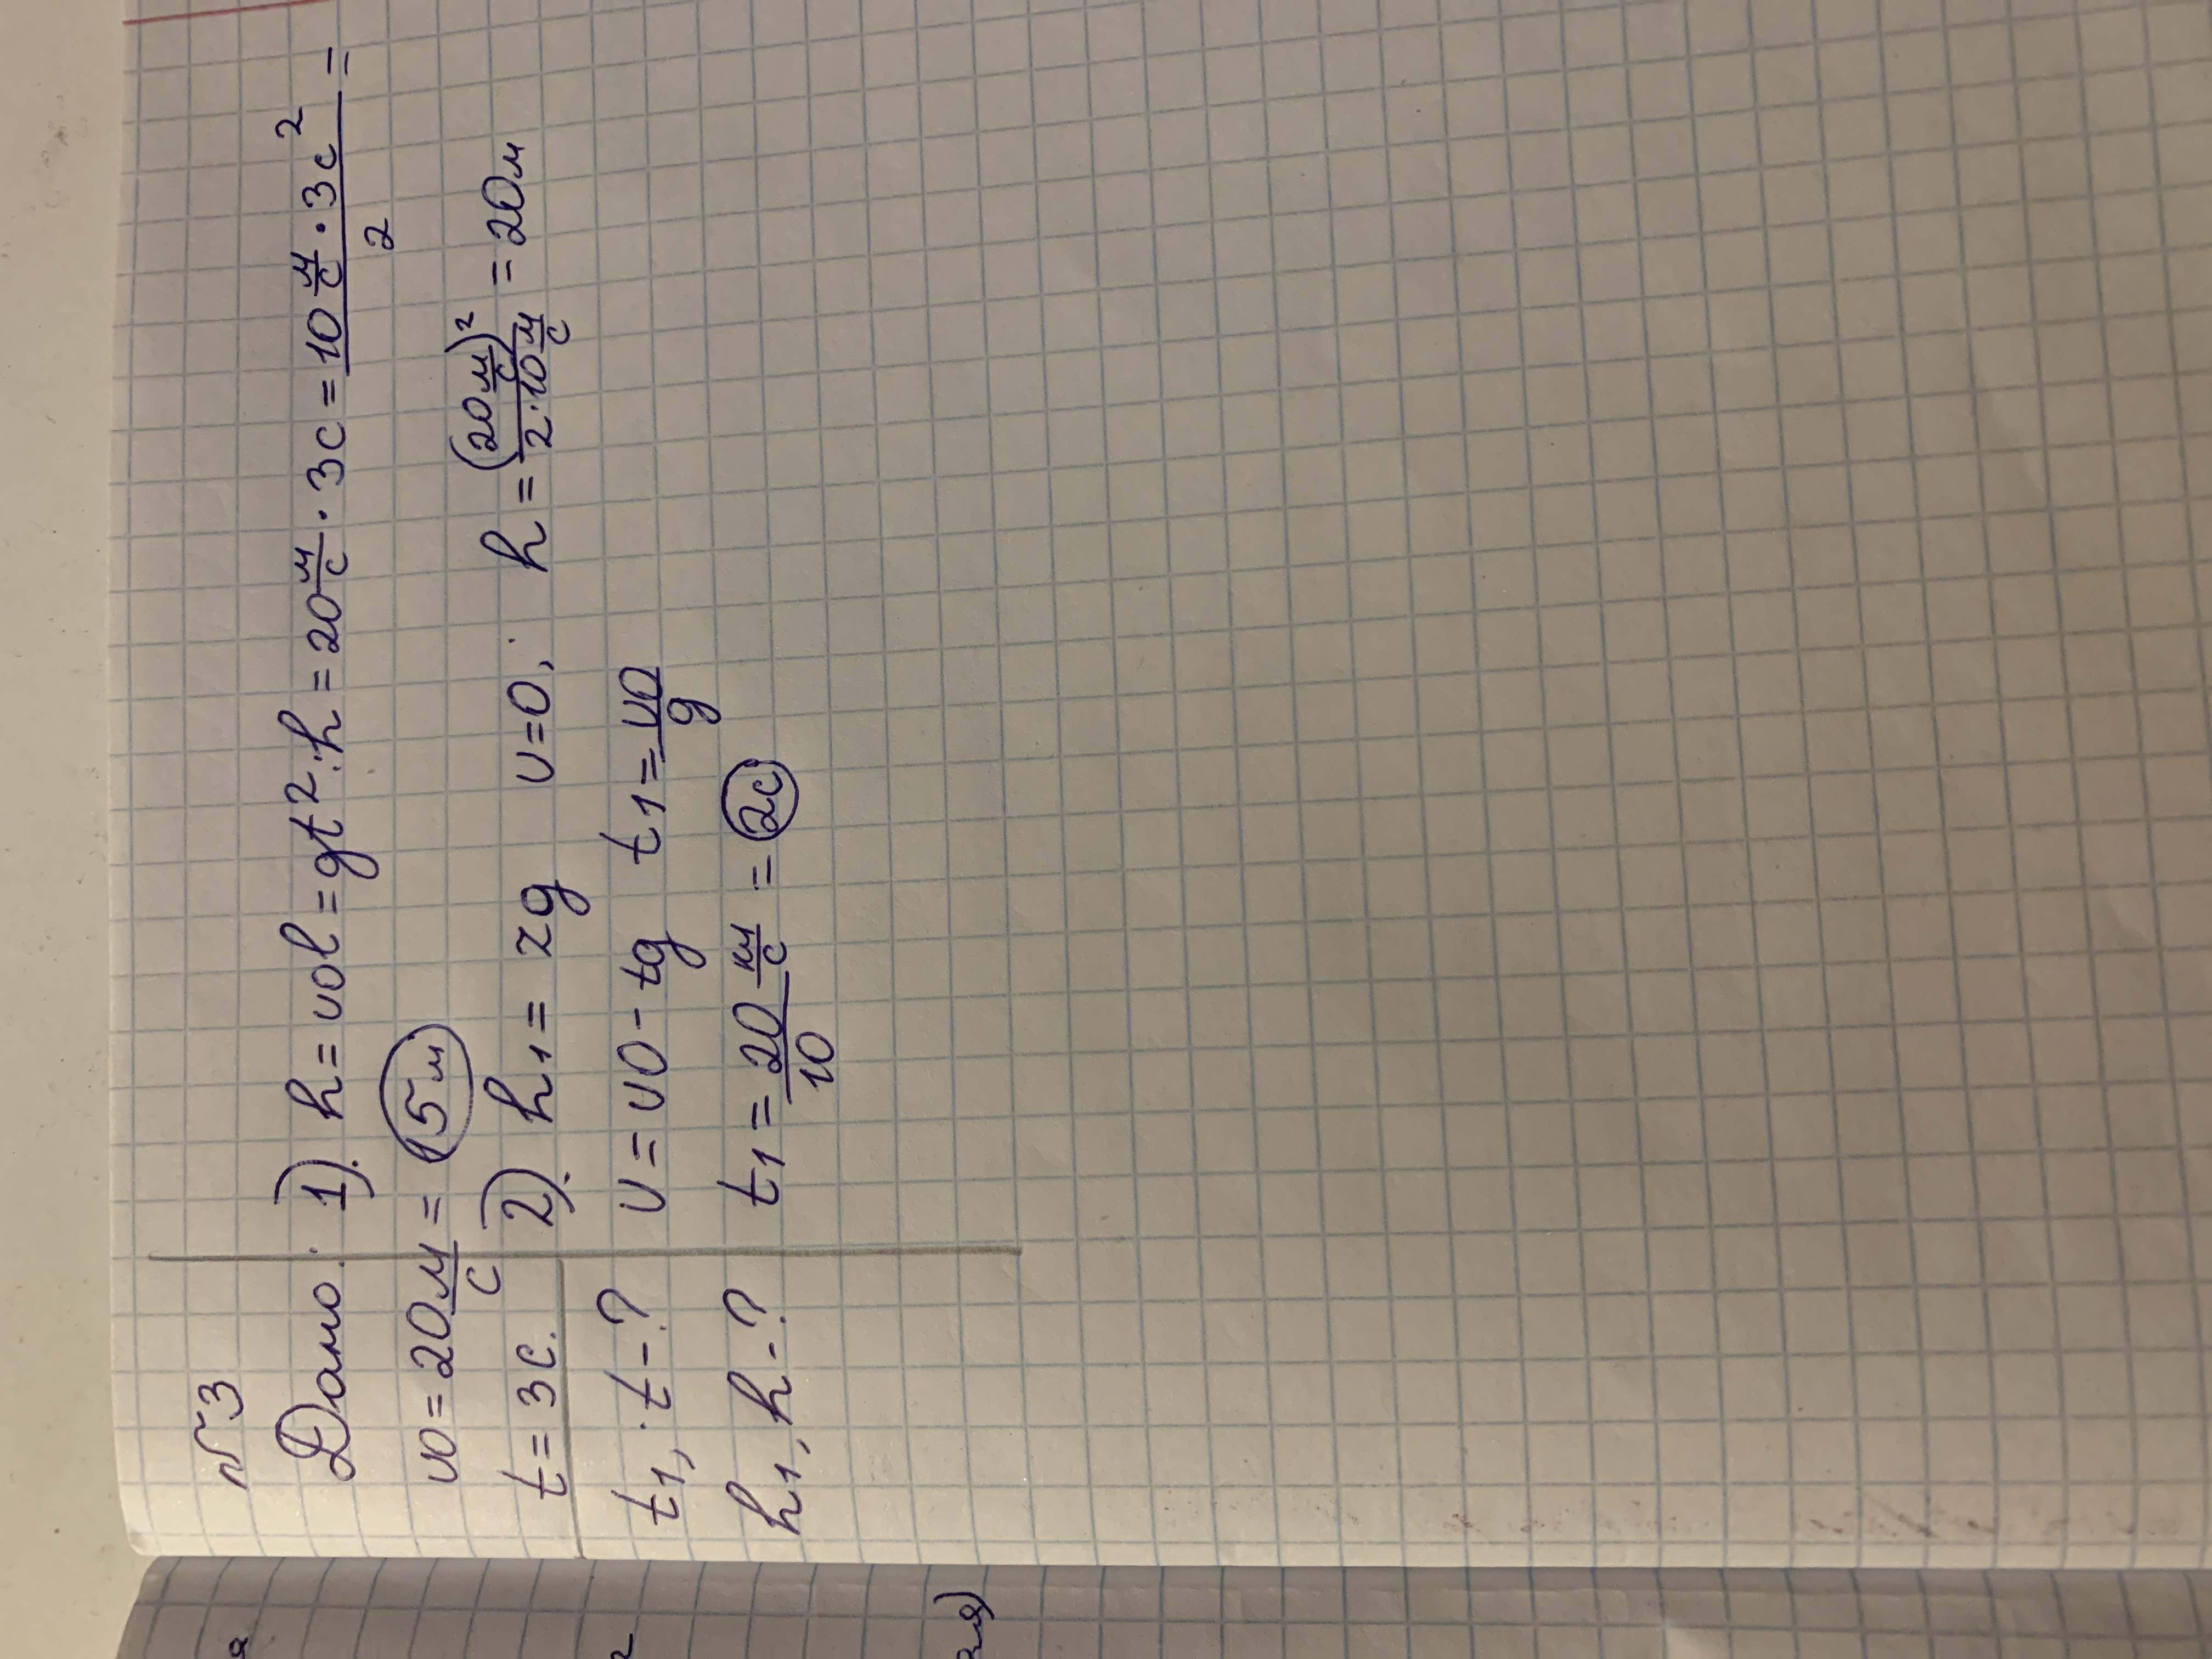 №3
Дано: 1). h = v0l = gt²: h = 20 м/с · 3с = 10 м/с · 3с² / 2 =
v0 = 20 м/с = 15м
t = 3с. 2). h1 = 2g v=0; h = (20 м/с)² / 2·10 м/с = 20м
t1, t - ? v = v0 - tg t1 = v0/g
h1, h - ? t1 = 20/10 м/с = 2с
я
2
ая)